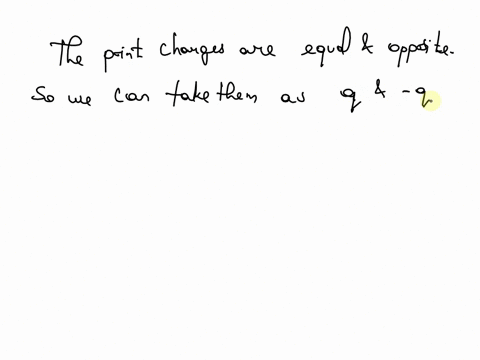 The point charges are equal & opposite.
So we can take them as q & -q